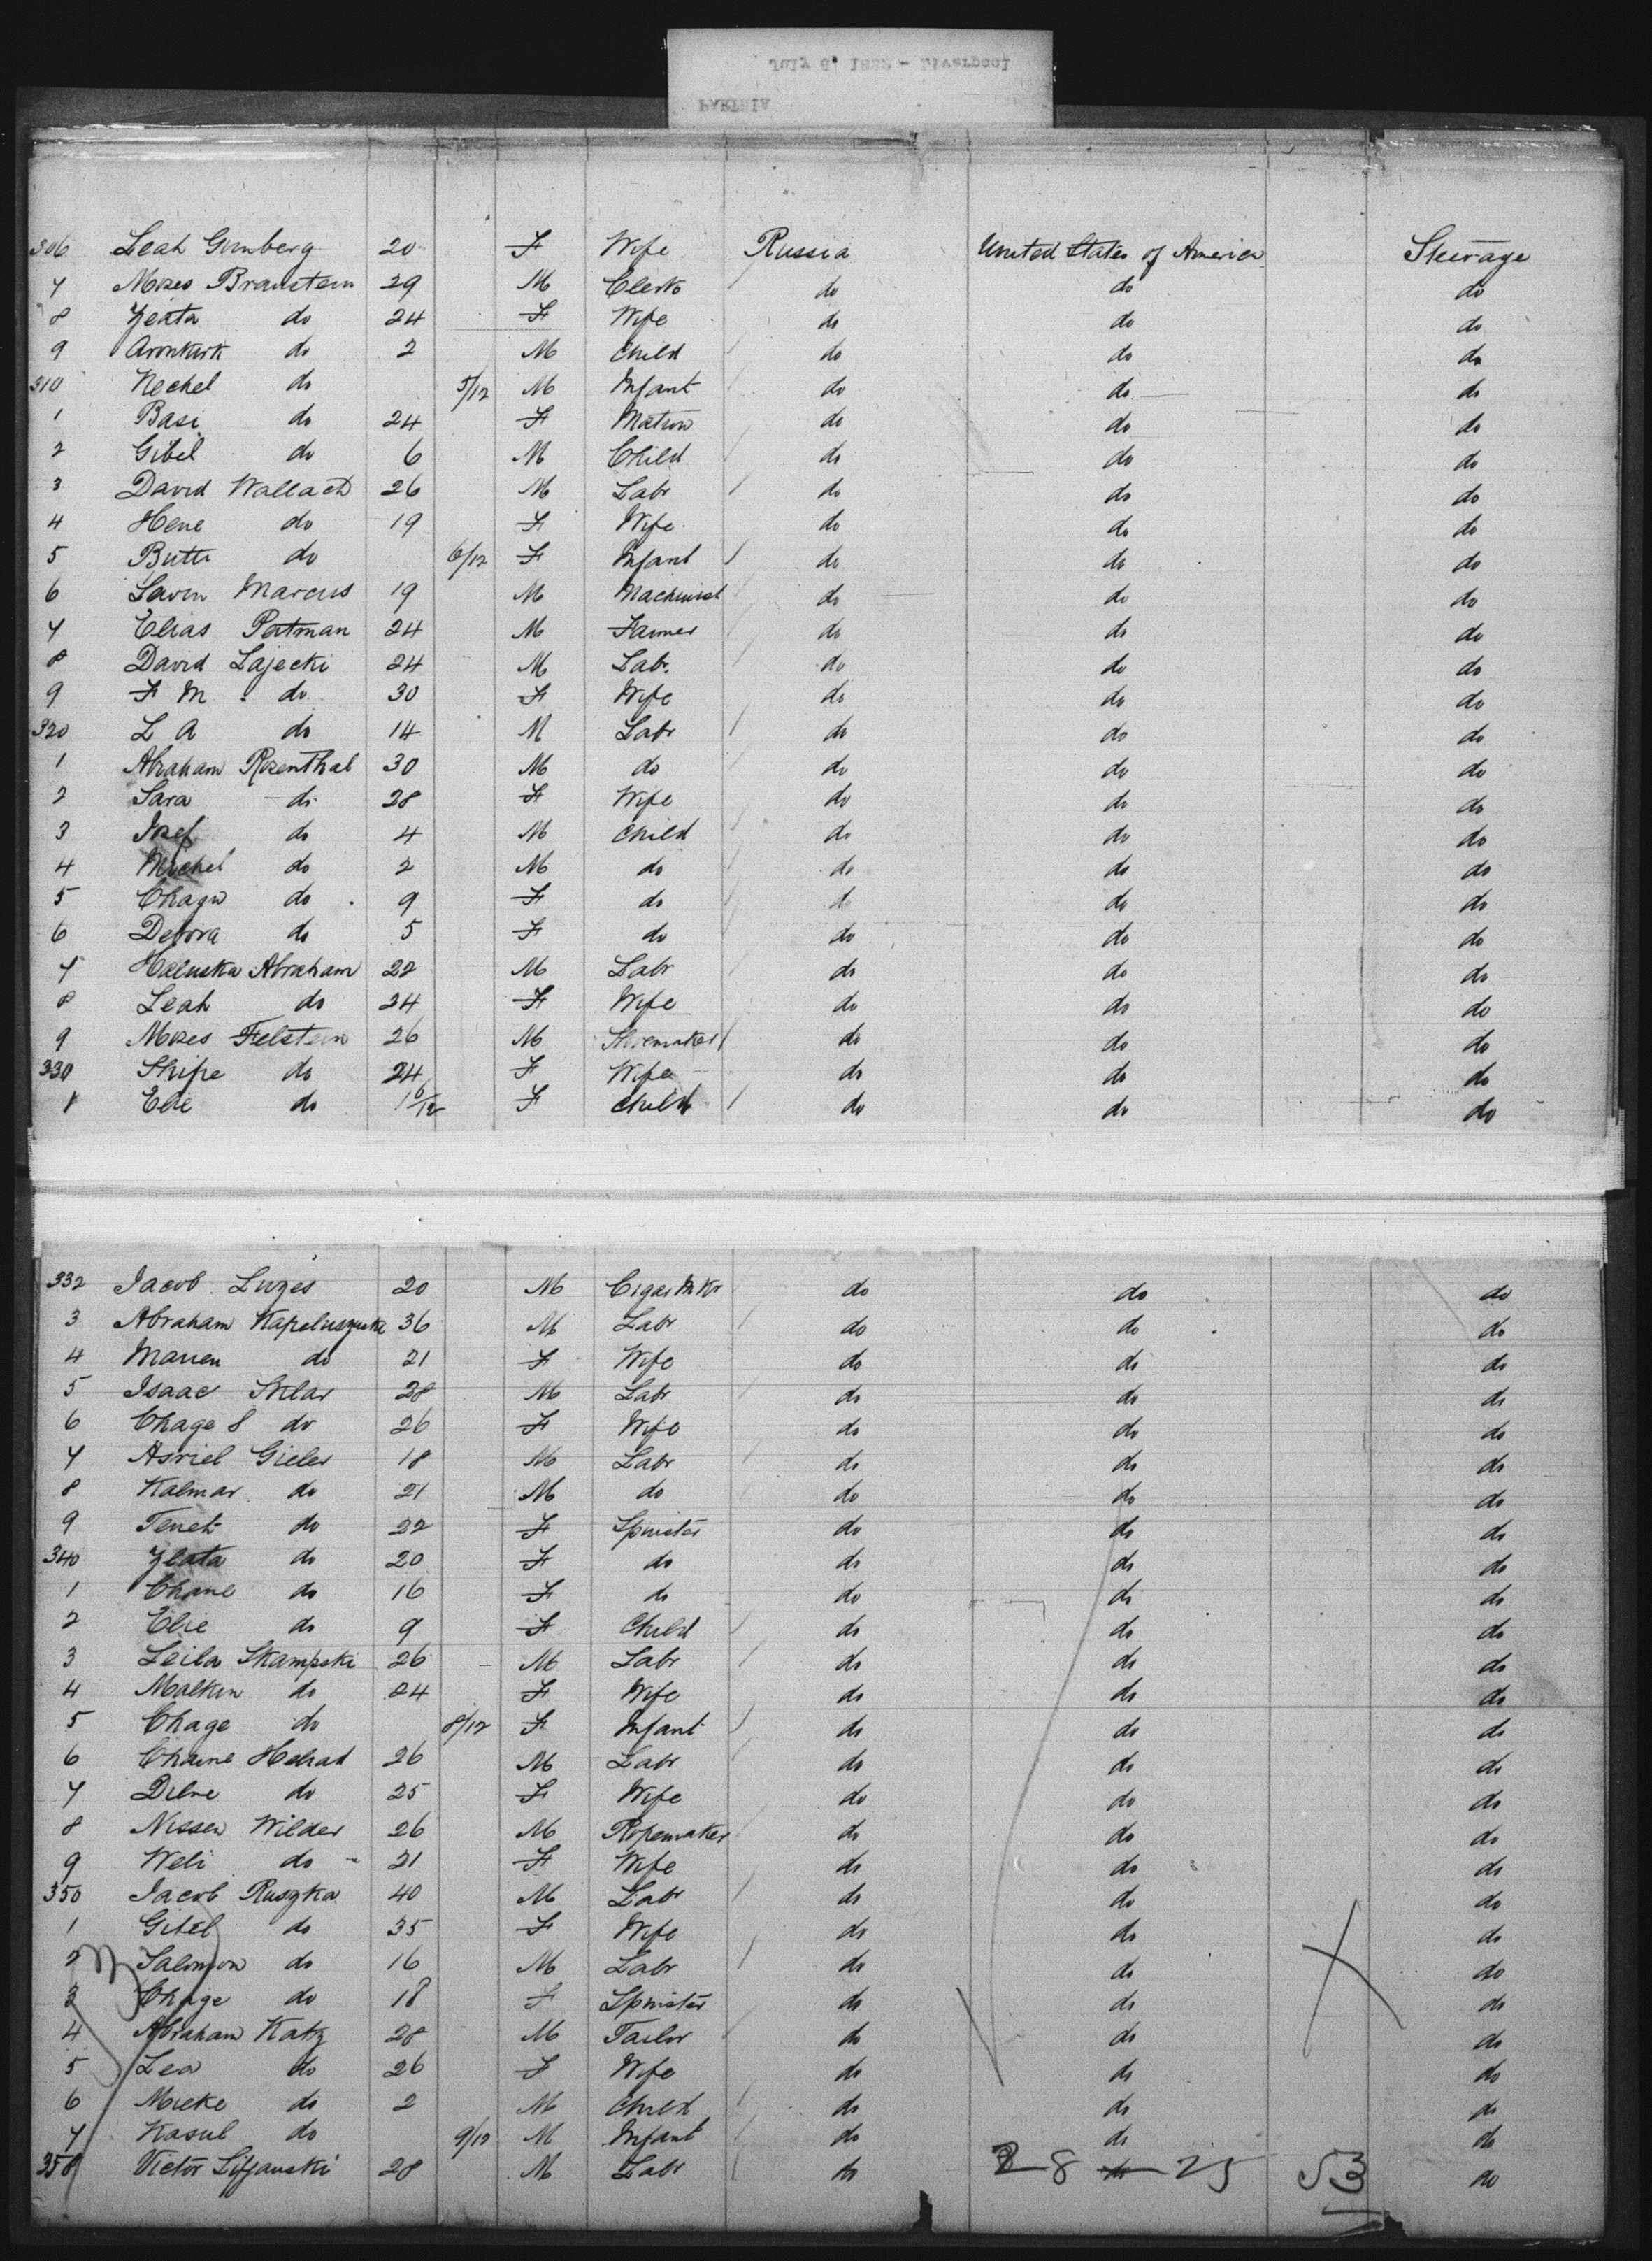 July 6, 1882 - Liverpool
PARTHIA
306 Leah Gumberg 20 F Wife Russia United States of America Steerage
7 Moses Braustein 29 M Clerk do do do
8 Zlata do 24 F Wife do do do
9 Aronkirk do 2 M Child do do do
310 Nechel do 5/12 M Infant do do do
1 Basi do 24 F Matron do do do
2 Gibel do 6 M Child do do do
3 David Wallach 26 M Labr do do do
4 Hene do 19 F Wife do do do
5 Butte do 6/12 F Infant do do do
6 Lavin Marcus 19 M Machinist do do do
7 Elias Patman 24 M Farmer do do do
8 David Lajecki 24 M Labr. do do do
9 F M do 30 F Wife do do do
320 L A do 14 M Labr do do do
1 Abraham Rosenthal 30 M do do do do
2 Sara do 28 F Wife do do do
3 Josef do 4 M Child do do do
4 Michel do 2 M do do do do
5 Chagu do 9 F do do do do
6 Debora do 5 F do do do do
7 Haluska Abraham 22 M Labr do do do
8 Leah do 24 F Wife do do do
9 Moses Felstein 26 M Shoemaker do do do
330 Shipe do 24 F Wife do do do
1 Elie do 10/12 F Child do do do
332 Jacob Luzes 20 M Cigar Mkr do do do
3 Abraham Kapeluszuska 36 M Labr do do do
4 Marien do 21 F Wife do do do
5 Isaac Sklar 28 M Labr do do do
6 Chage S do 26 F Wife do do do
7 Asriel Gieler 18 M Labr do do do
8 Kalmar do 21 M do do do do
9 Tenet do 22 F Spinster do do do
340 Zlata do 20 F do do do do
1 Chane do 16 F do do do do
2 Elie do 9 F Child do do do
3 Leila Skampski 26 M Labr do do do
4 Malken do 24 F Wife do do do
5 Chage do 8/12 F Infant do do do
6 Chaine Helrad 26 M Labr do do do
7 Dilne do 25 F Wife do do do
8 Nissen Wilder 26 M Ropemaker do do do
9 Weli do 21 F Wife do do do
350 Jacob Ruszka 40 M Labr do do do
1 Gitel do 35 F Wife do do do
2 Salomon do 16 M Labr do do do
3 Chage do 18 F Spinster do do do
4 Abraham Katz 28 M Tailor do do do
5 Lea do 26 F Wife do do do
6 Mieke do 2 M Child do do do
7 Kasul do 9/12 M Infant do do do
358 Victor Lifjanski 28 M Labr do do do
28 - 25 53